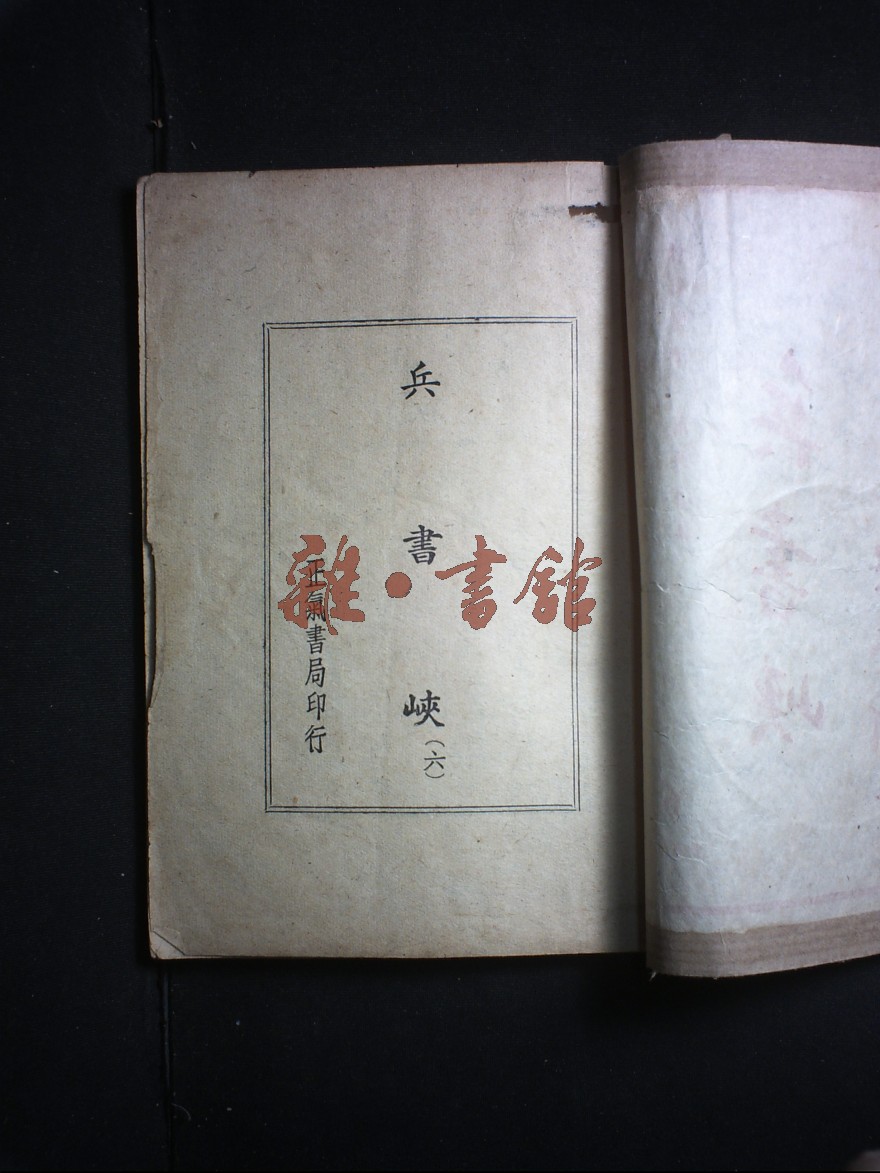 兵書峽
(六)
正氣書局印行
雜·書舘